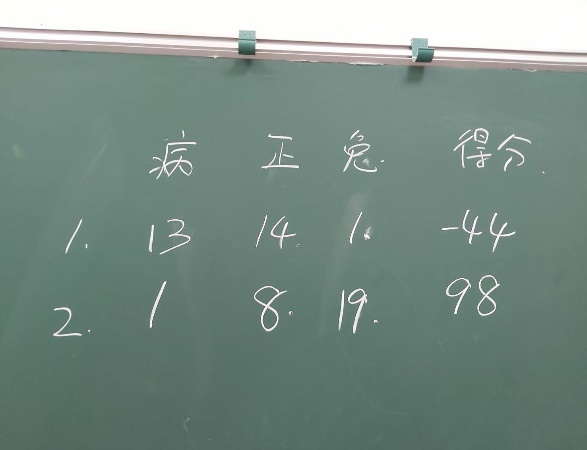 病 正 免. 得分.
1. 13 14. 1. -44
2. 1 8. 19. 98